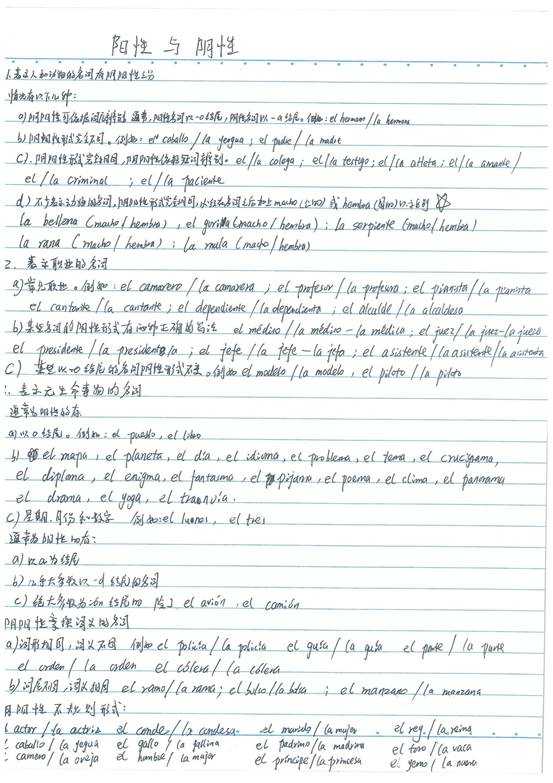 阳性 与 阴性
1.表示人和动物的名词有阴阳性之分
情况有以下几种:
a)阴阳性可依据词尾辨别 通常,阳性名词以-o结尾,阴性名词以-a结尾。例如: el hermano/la hermana
b)阴阳性形式完全不同。例如: el caballo /la yegua ; el padre / la madre
c). 阴阳性形式完全相同,阴阳性依据冠词辨别。el/la colega ; el/la testigo ; el/la atleta ; el/la amante/
el /la criminal ; el /la paciente
d) 不少表示动物的名词,阴阳性形式完全相同,必须在名词之后加上macho(公的) 或 hembra(母的)以示区别
la bellena (macho/hembra) , el gorilla(macho / hembra) ; la serpiente (macho/hembra)
la rana (macho / hembra) ; la mula (macho/hembra)
2. 表示职业的名词
a)常见职业。例如: el camarero / la camarera ; el profesor / la profesora ; el pianista / la pianista
el cantante / la cantante ; el dependiente / la dependienta ; el alcalde / la alcaldesa
b)某些名词的阴性形式有两种正确的写法 el médico / la médico - la médica ; el juez/ la juez-la jueza
el presidente / la presidente/a ; el jefe / la jefe - la jefa ; el asistente / la asistente/la asistenta
c) 某些以-o结尾的名词阴阳性形式不变。例如 el modelo / la modelo , el piloto / la piloto
表示无生命事物的名词
通常为阳性的有
a)以o结尾。例如: el pueblo , el libro
b) el mapa , el planeta , el día , el idioma , el problema , el tema , el crucigrama,
el diploma , el enigma , el fantasma , el pijama , el poema , el clima , el panorama
el drama , el yoga , el tranvía .
c)星期、月份和数字 例如:el lunes , el tres
通常为阴性的有:
a) 以a为结尾
b) 绝大多数以 -d 结尾的名词
c) 绝大多数为ión结尾的 除了 el avión , el camión
阴阳性掌握词义的名词
a)词形相同,词义不同 例如 el policía / la policía el guía / la guía el parte / la parte
el orden / la orden el cólera / la cólera
b) 词尾不同,词义相同 el ramo / la rama ; el bolso/la bolsa ; el manzano / la manzana
阴阳性 不规则形式:
actor / la actriz el conde / la condesa el marido / la mujer . el rey / la reina
caballo / la yegua el gallo / la gallina el padrino / la madrina el toro / la vaca
carnero / la oveja el hombre / la mujer el príncipe / la princesa el yerno / la nuera